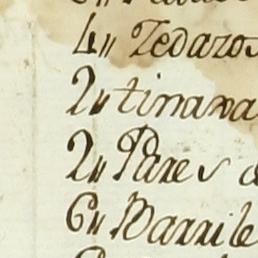 4,, Zedazos
2,, tinnaxa
2,, Pares
6,, Barrile